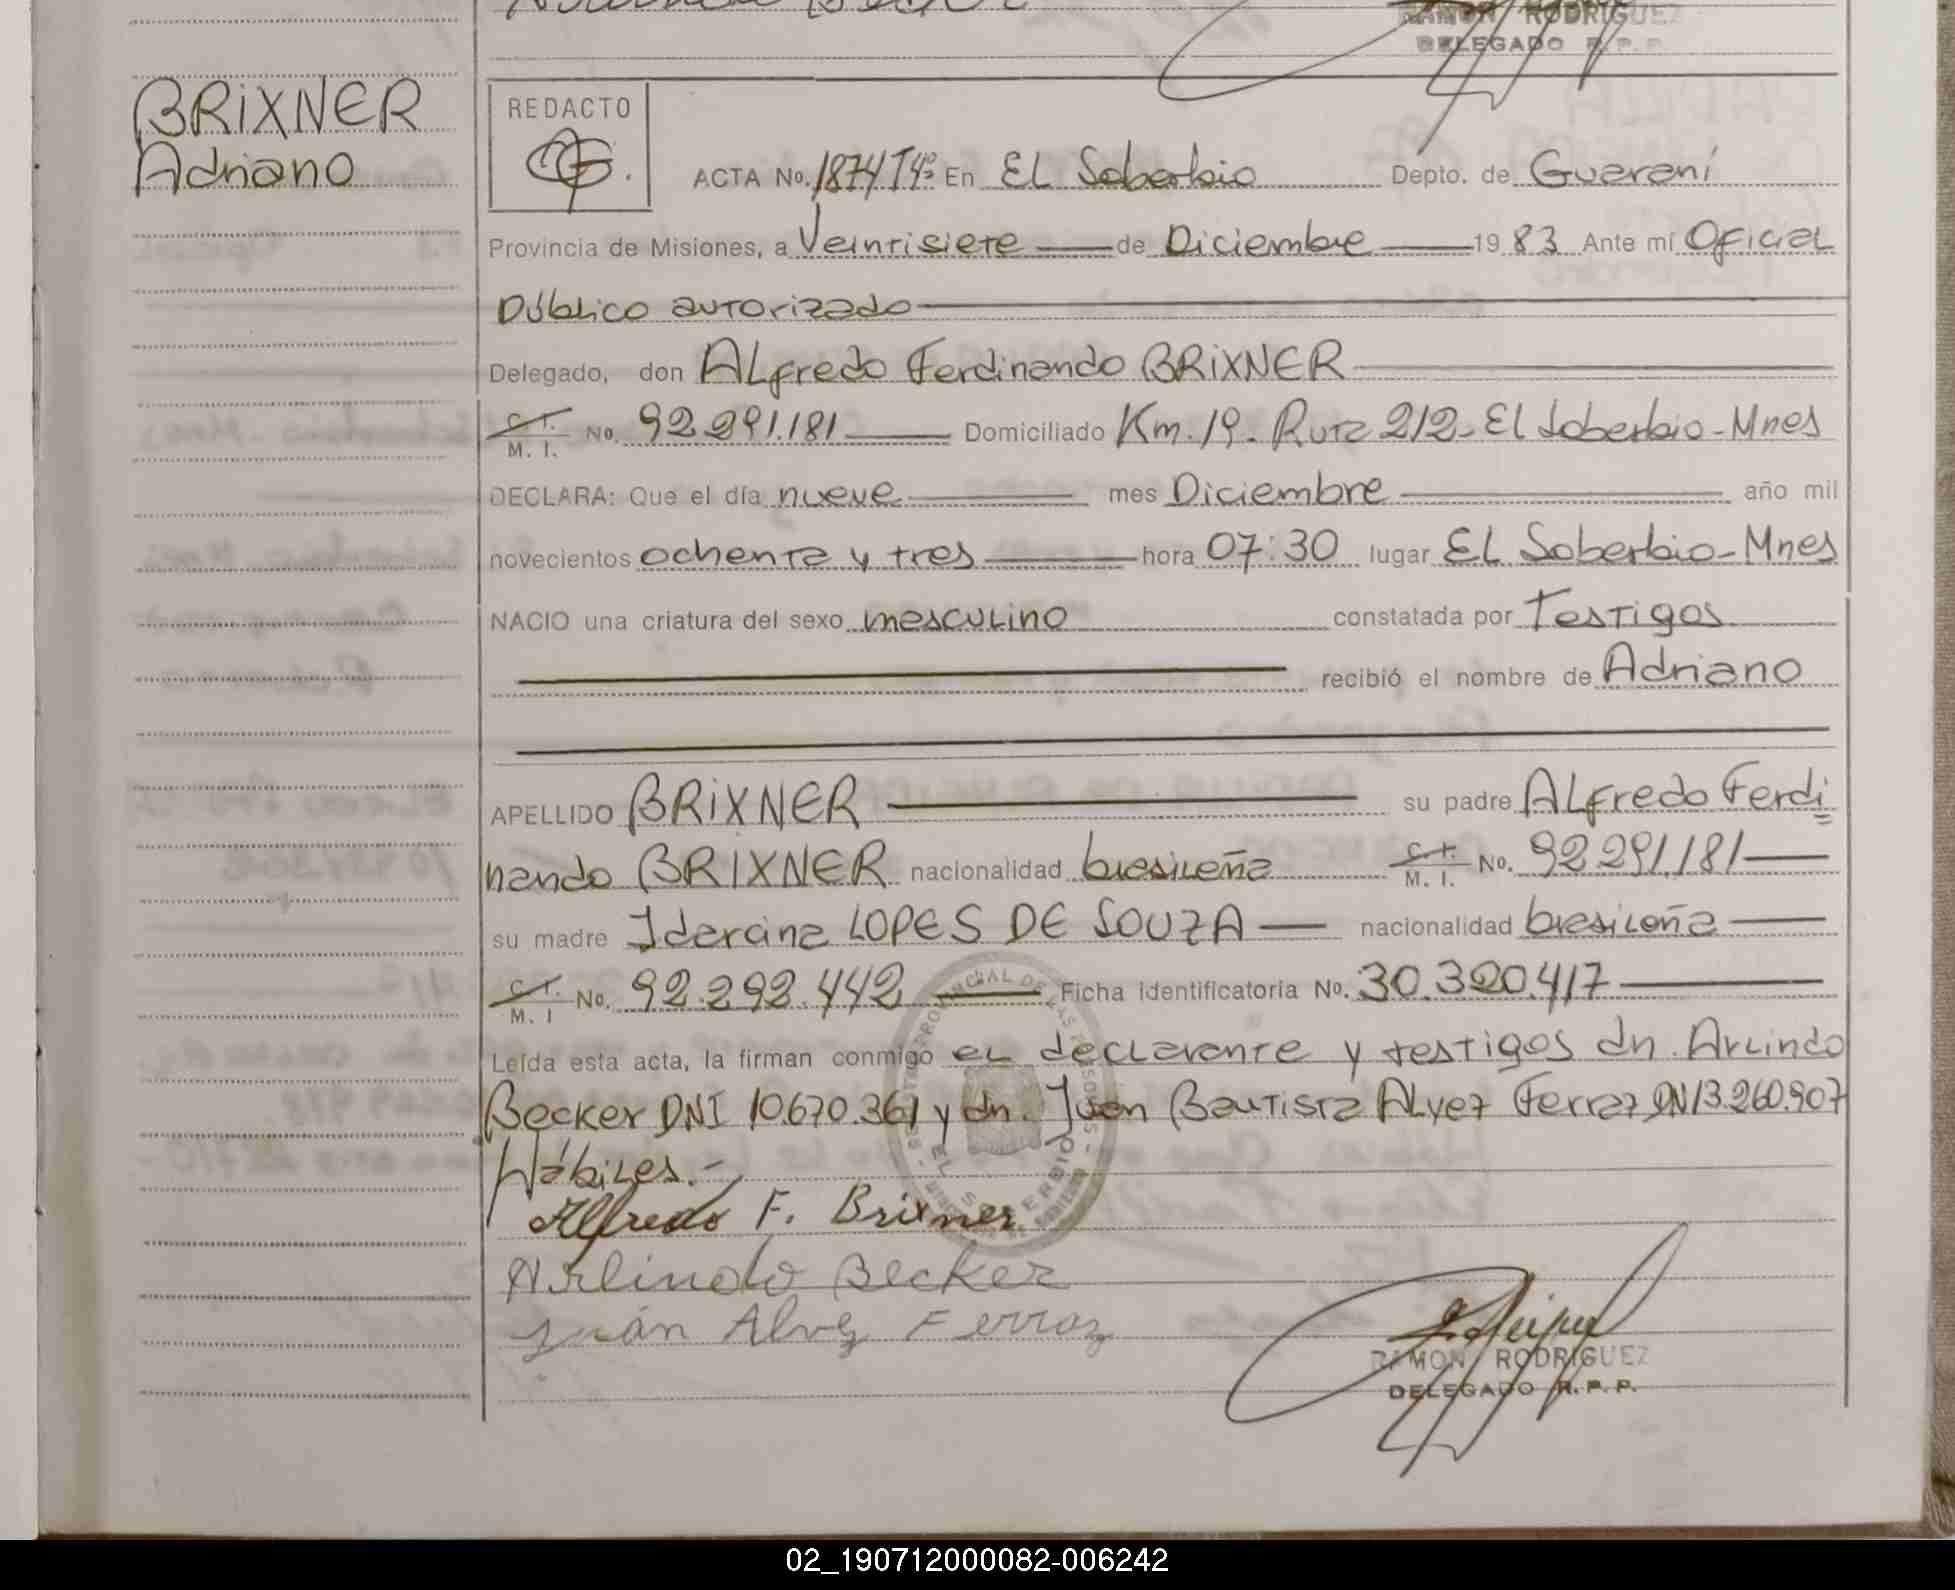 RAMON RODRIGUEZ
DELEGADO R.P.P.
BRIXNER
Adriano
REDACTO
ACTA No. 1874 T4º En EL Soberbio Depto. de Guaraní
Provincia de Misiones, a Veintisiete de Diciembre 19 83 Ante mí Oficial
Público autorizado
Delegado, don ALfredo Ferdinando BRIXNER
C. I. M. I. No. 92.291.181 Domiciliado Km. 19 - Ruta 212 - El Soberbio - Mnes
DECLARA: Que el día nueve mes Diciembre año mil
novecientos ochenta y tres hora 07:30 lugar EL Soberbio - Mnes
NACIO una criatura del sexo masculino constatada por Testigos
recibió el nombre de Adriano
APELLIDO BRIXNER su padre ALfredo Ferdi
nando BRIXNER nacionalidad brasileña C. I. M. I. No. 92.291.181
su madre Idarcina LOPES DE SOUZA nacionalidad brasileña
C. I. M. I No. 92.292.442 Ficha identificatoria No. 30.320.417
Leída esta acta, la firman conmigo el declarante y testigos dn. Arlindo
Becker DNI 10.670.361 y dn. Juan Bautista ALvez Ferraz DNI 3.260.907
Hábiles.-
Alfredo F. Brixner
Arlindo Becker
Juán Alvez Ferraz
RAMON RODRIGUEZ
DELEGADO R.P.P.
02_190712000082-006242